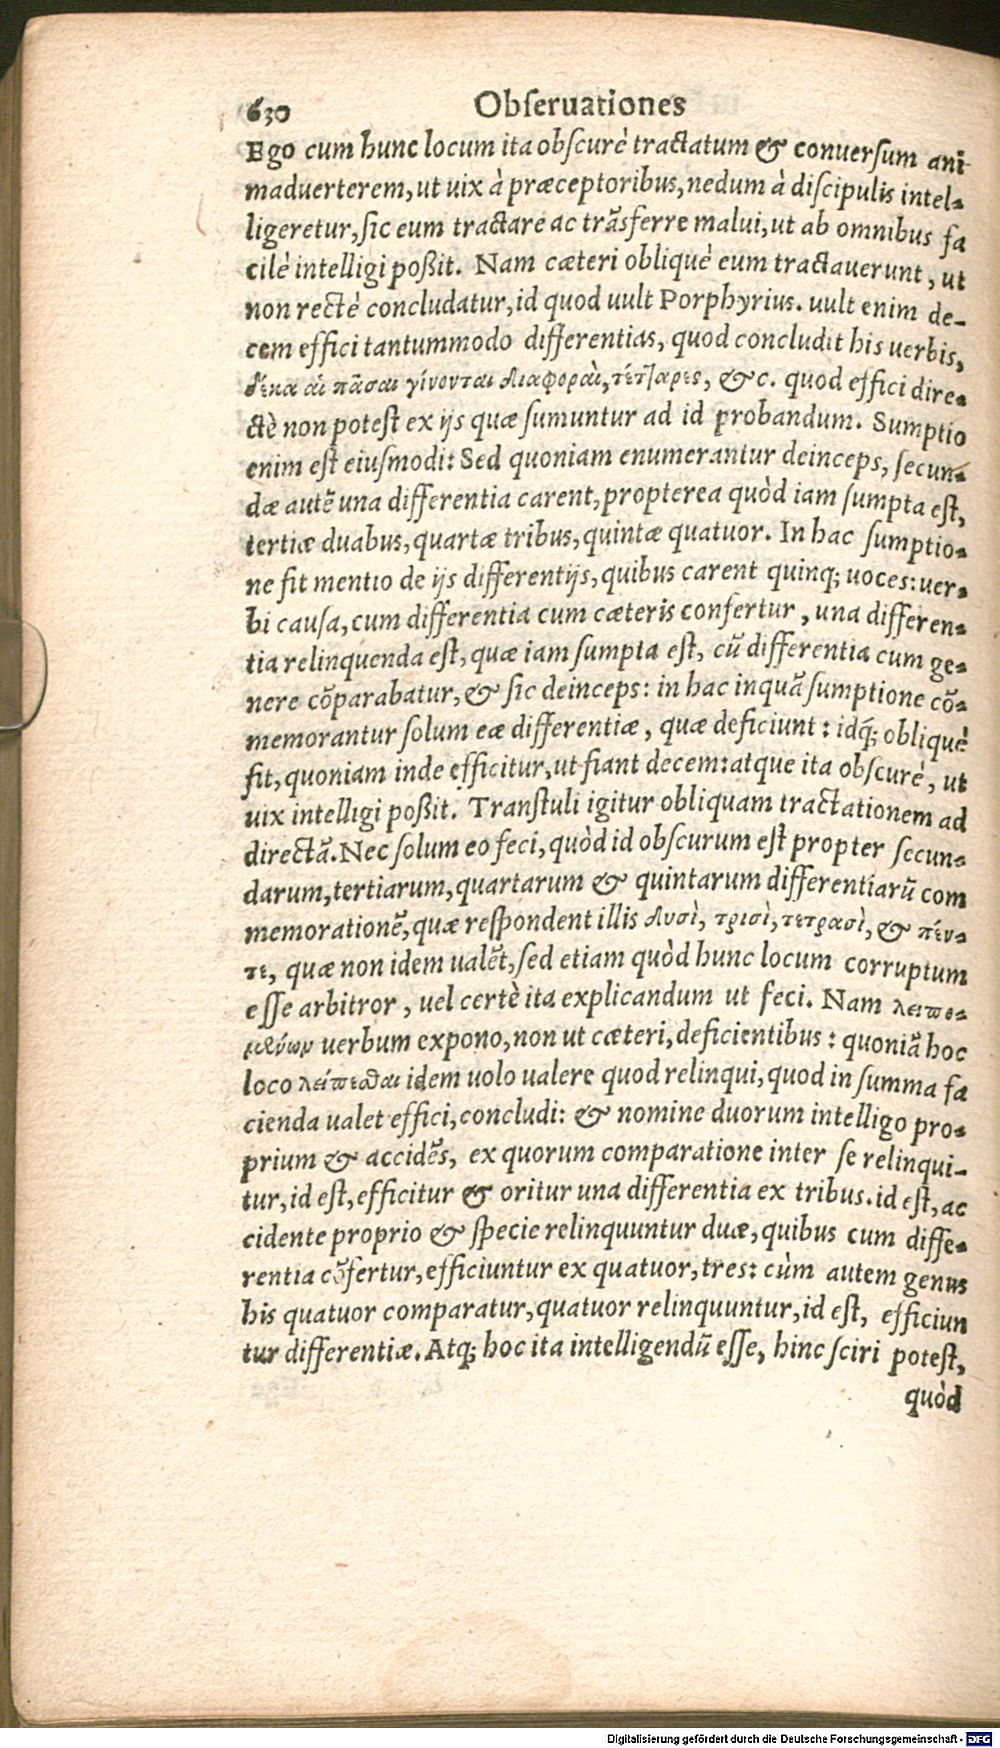 630 Obſeruationes
Ego cum hunc locum ita obſcurè tractatum & conuerſum ani
maduerterem, ut uix à præceptoribus, nedum à diſcipulis intel-
ligeretur, ſic eum tractare ac trāsferre malui, ut ab omnibus fa
cilè intelligi poßit. Nam cæteri obliquè eum tractauerunt, ut
non rectè concludatur, id quod uult Porphyrius. uult enim de-
cem effici tantummodo differentias, quod concludit his uerbis,
δέκα αἱ πᾶσαι γίνονται διαφοραὶ, τέτταρες, &c. quod effici dire-
ctè non poteſt ex ijs quæ ſumuntur ad id probandum. Sumptio
enim eſt eiuſmodi: Sed quoniam enumerantur deinceps, ſecun-
dæ autē una differentia carent, propterea quòd iam ſumpta eſt,
tertiæ duabus, quartæ tribus, quintæ quatuor. In hac ſumptio-
ne fit mentio de ijs differentijs, quibus carent quinq; uoces: uer-
bi cauſa, cum differentia cum cæteris confertur, una differen-
tia relinquenda eſt, quæ iam ſumpta eſt, cū differentia cum ge-
nere cōparabatur, & ſic deinceps: in hac inquā ſumptione cō-
memorantur ſolum eæ differentiæ, quæ deficiunt: idq́; obliquè
fit, quoniam inde efficitur, ut fiant decem: atque ita obſcurè, ut
uix intelligi poßit. Tranſtuli igitur obliquam tractationem ad
directā. Nec ſolum eo feci, quòd id obſcurum eſt propter ſecun-
darum, tertiarum, quartarum & quintarum differentiarū com
memorationē, quæ reſpondent illis δυσὶ, τρισὶ, τετρασὶ, & πέν-
τε, quæ non idem ualēt, ſed etiam quòd hunc locum corruptum
eſſe arbitror, uel certè ita explicandum ut feci. Nam λειπο-
μένων uerbum expono, non ut cæteri, deficientibus: quoniā hoc
loco λείπεσθαι idem uolo ualere quod relinqui, quod in ſumma fa
cienda ualet effici, concludi: & nomine duorum intelligo pro-
prium & accidēs, ex quorum comparatione inter ſe relinqui-
tur, id eſt, efficitur & oritur una differentia ex tribus. id eſt, ac
cidente proprio & ſpecie relinquuntur duæ, quibus cum diffe-
rentia cōfertur, efficiuntur ex quatuor, tres: cùm autem genus
his quatuor comparatur, quatuor relinquuntur, id eſt, efficiun
tur differentiæ. Atq; hoc ita intelligendū eſſe, hinc ſciri poteſt,
quòd
Digitalisierung gefördert durch die Deutsche Forschungsgemeinschaft - DFG